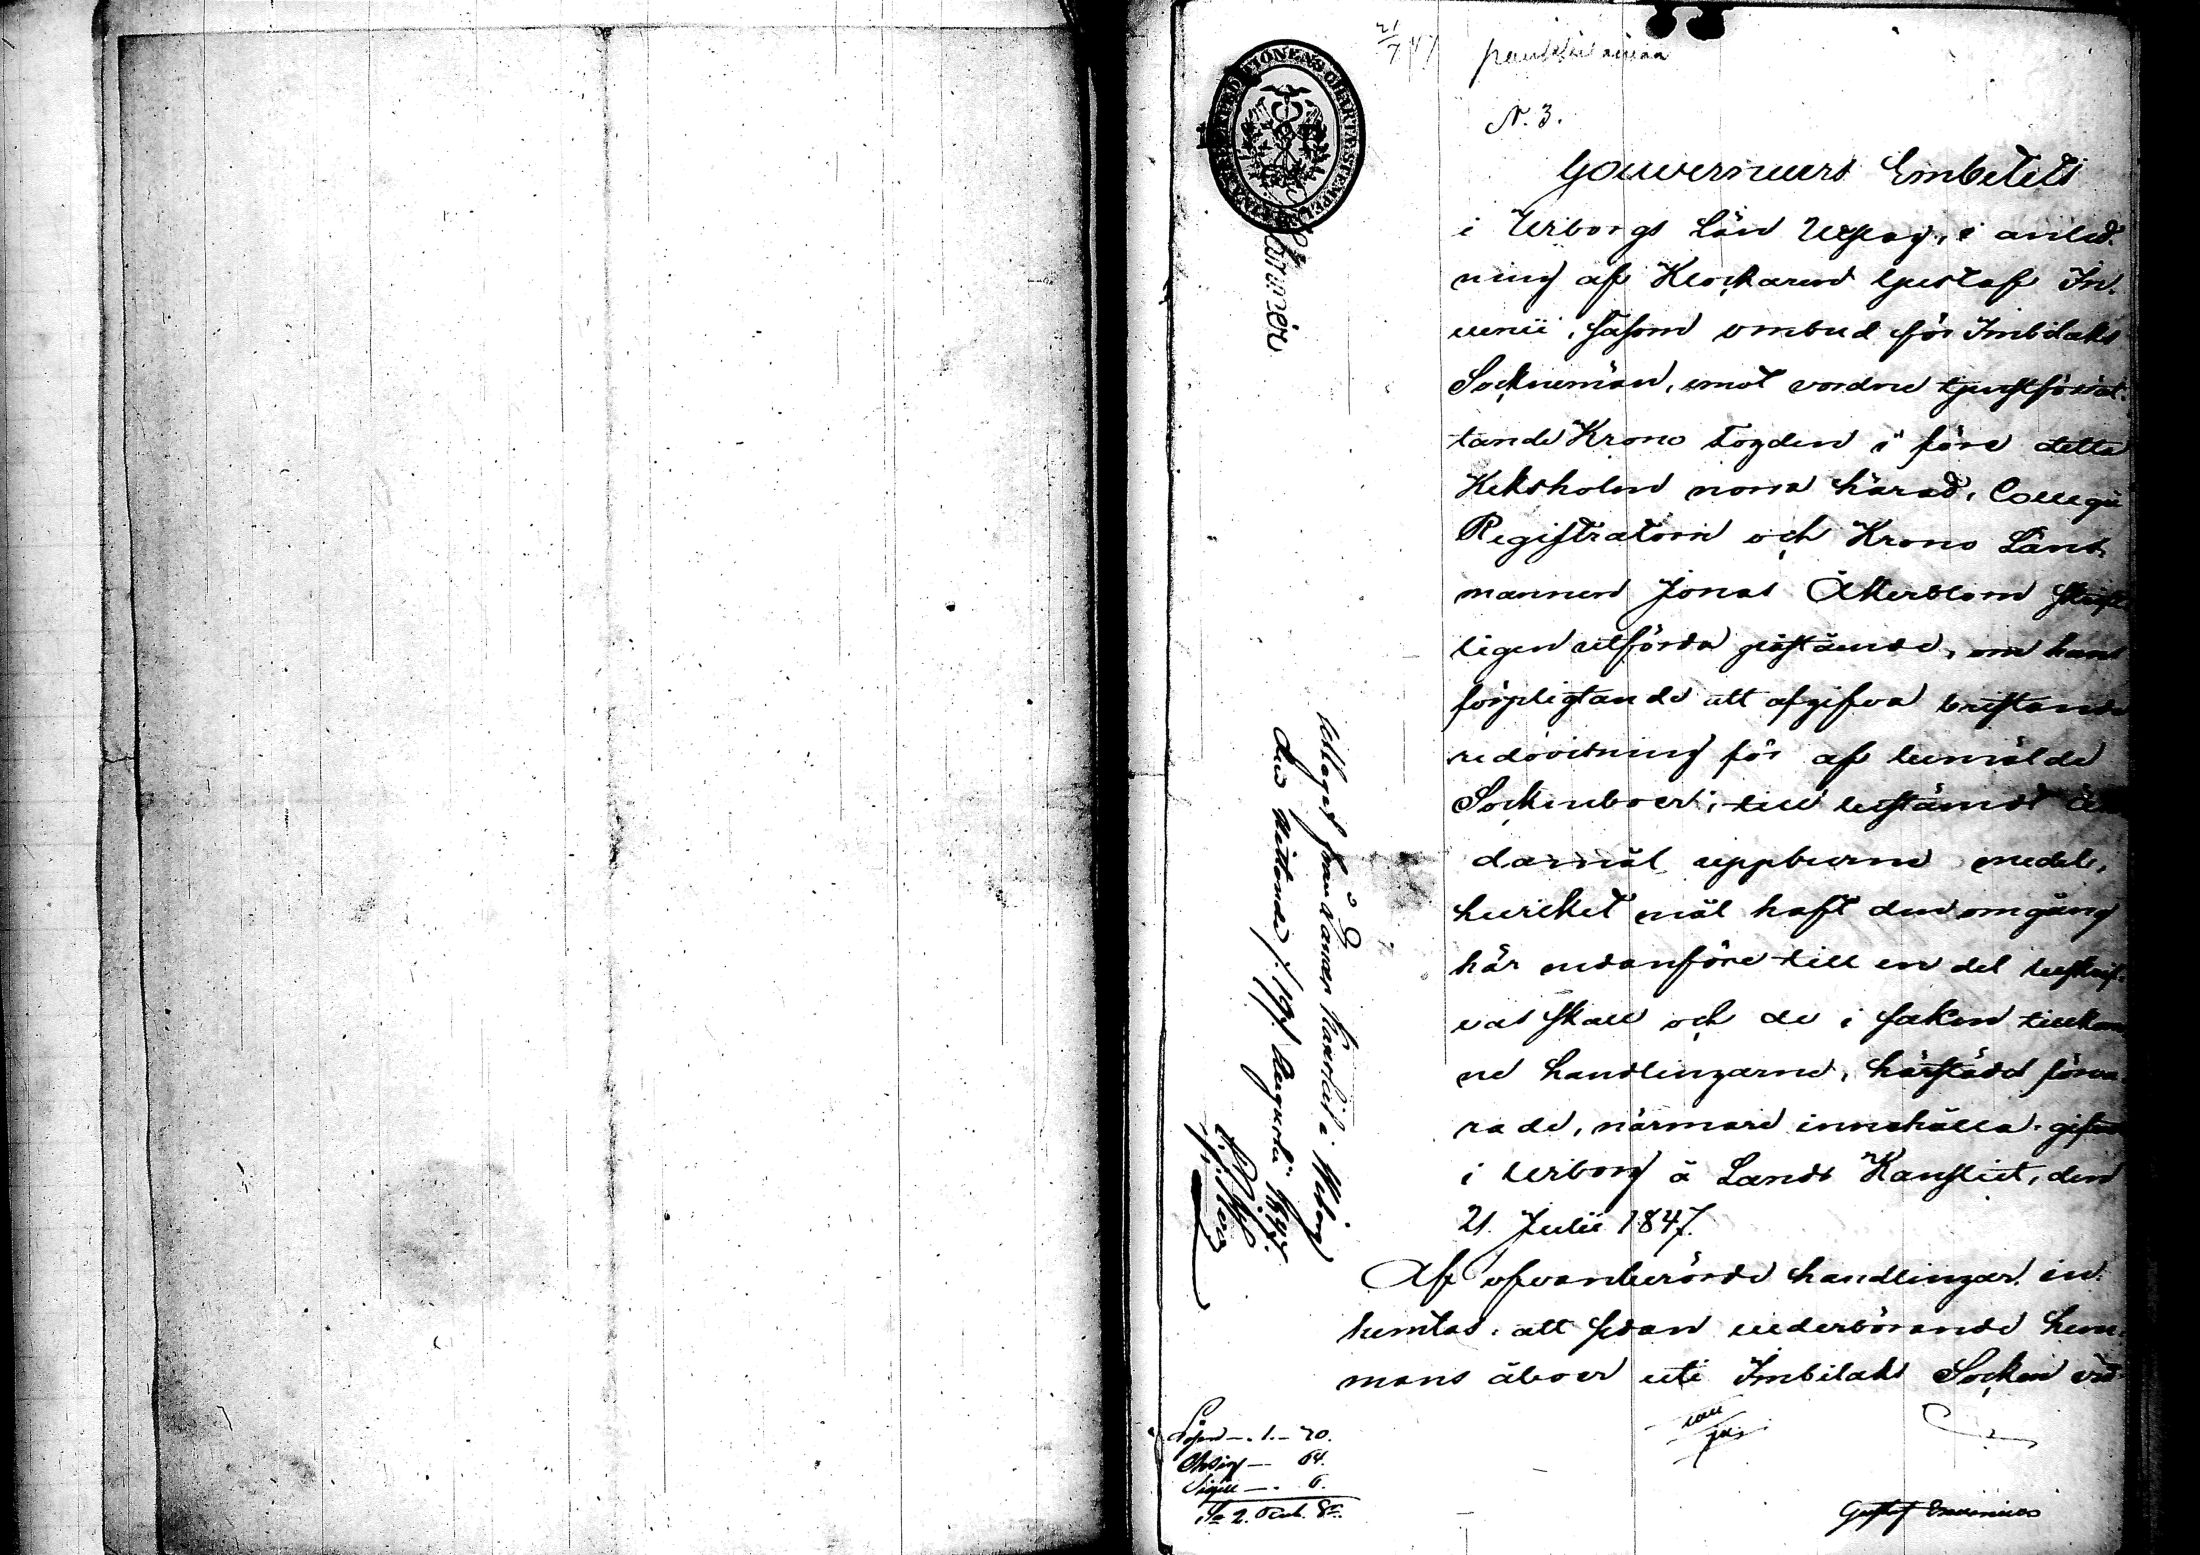 21/7 47
N. 3.
Gouverneurs Embetets
i Wiborgs Län Utslag, i anled-
ning af Klockaren Gustaf In-
uenii, såsom ombud för Imbilaks
Socknemän, emot vordne tjenstförrät-
tande Krono Fogden i före detta
Keksholms norra härad, Collegii
Registratorn och Krono Läns-
mannen Jonas Åkerblom skrift-
ligen utförda påstående, om hans
förpligtande att afgifva bristande
redovisning för af bemälde
Sockneboer, till bestämdt än-
damål uppburne medel,
hvilket mål haft den omgång
här nedanföre till en del beskrif-
vas skall och de i saken tillkom-
ne handlingarne, härstädes förva-
rade, närmare innehålla. gifvet
i Wiborg å Lands Kansliet, den
21. Julii 1847.
Af ofvanberörde handlingar in-
hemtas, att sedan vederbörande hem-
mans åboer uti Imbilaks Socken vid
Lösen —. 1.— 70.
64.
Sigill —. 6.
Sa 2.
Gustaf